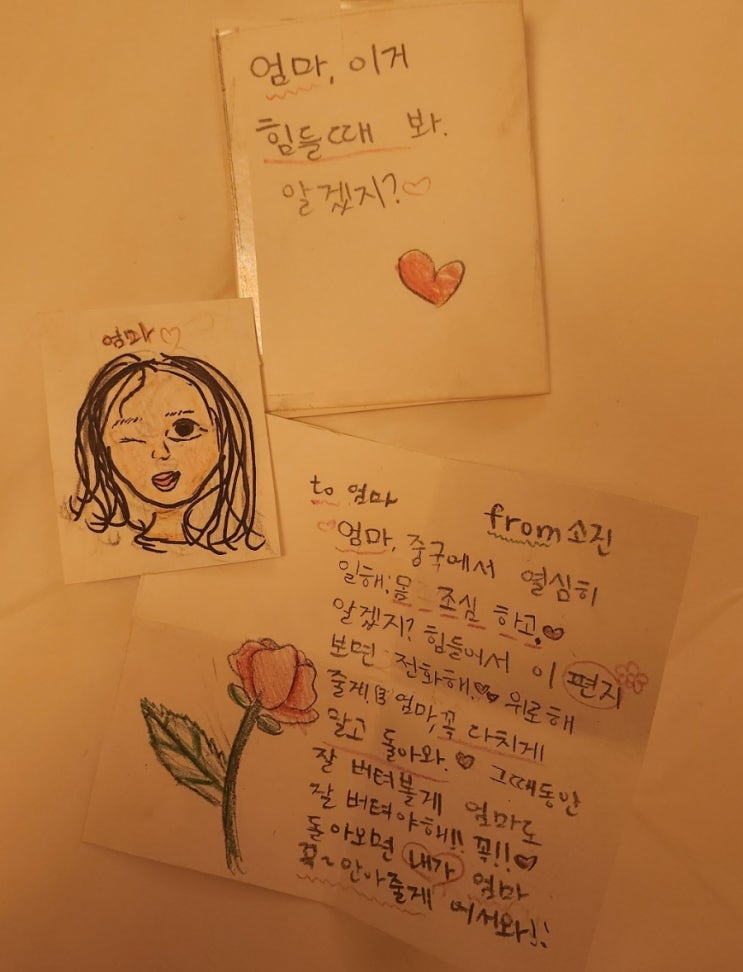 엄마, 이거
힘들때 봐.
알겠지?♡
엄마♡
to 엄마
from 소진
♡엄마, 중국에서 열심히
일해; 몸 조심 하고.♥
알겠지? 힘들어서 이 편지
보면 전화해.♥♥ 위로해
줄게. 엄마, 꼭 다치게
말고 돌아와.♥ 그때동안
잘 버텨볼게 엄마도
잘 버텨야해!! 꼭!!♥
돌아오면 내가 엄마
꼭~안아줄게 어서와!!